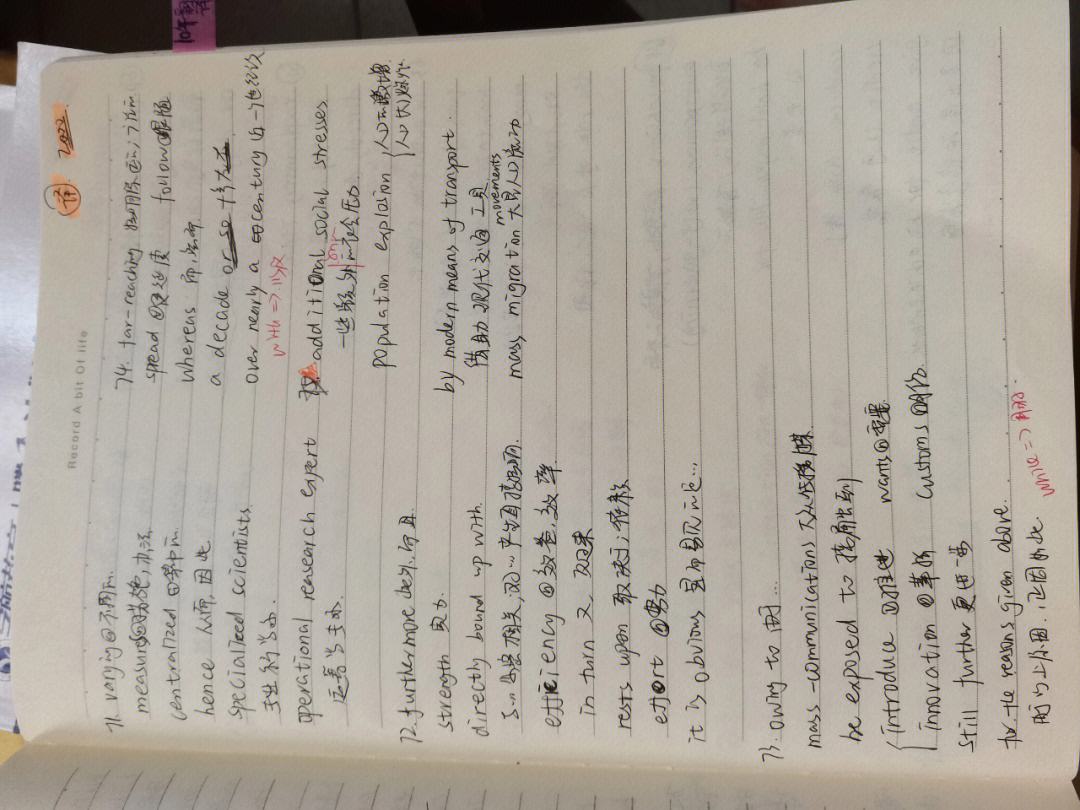 2022
Record A bit Of life
71. varying ②不同的
measures ②措施,办法
centralized ②集中的
hence 从而,因此
specialized scientists
专业科学家
operational reasearch expert
运筹学专家
72. furthermore 此外,而且
strength 实力
directly bound up with
与…息息相关,
efficiency ②效益,效率
in turn 又,反过来
rests upon 取决于;依赖
effort ②努力
it is obvious 显而易见的是…
73. owing to 由于…
mass-communications 大众传播媒
be exposed to 接触到
introduce ②推进 wants ②需要
innovation ②革新 customs ②习俗
still further 更进一步
for the reasons given above
由于上述原因,正因如此
while => 与
74. far-reaching 深远的;广泛的
spread ②蔓延度 follow ②跟随
whereas 而,然而
a decade or so 十年左右
over nearly a ②century 近一个世纪
with => 以及
additional social stresses
一些额外的社会压力
population explosion 人口激增
人口爆炸
by modern means of transport
借助现代交通工具
movements
mass migration 大量人口流动